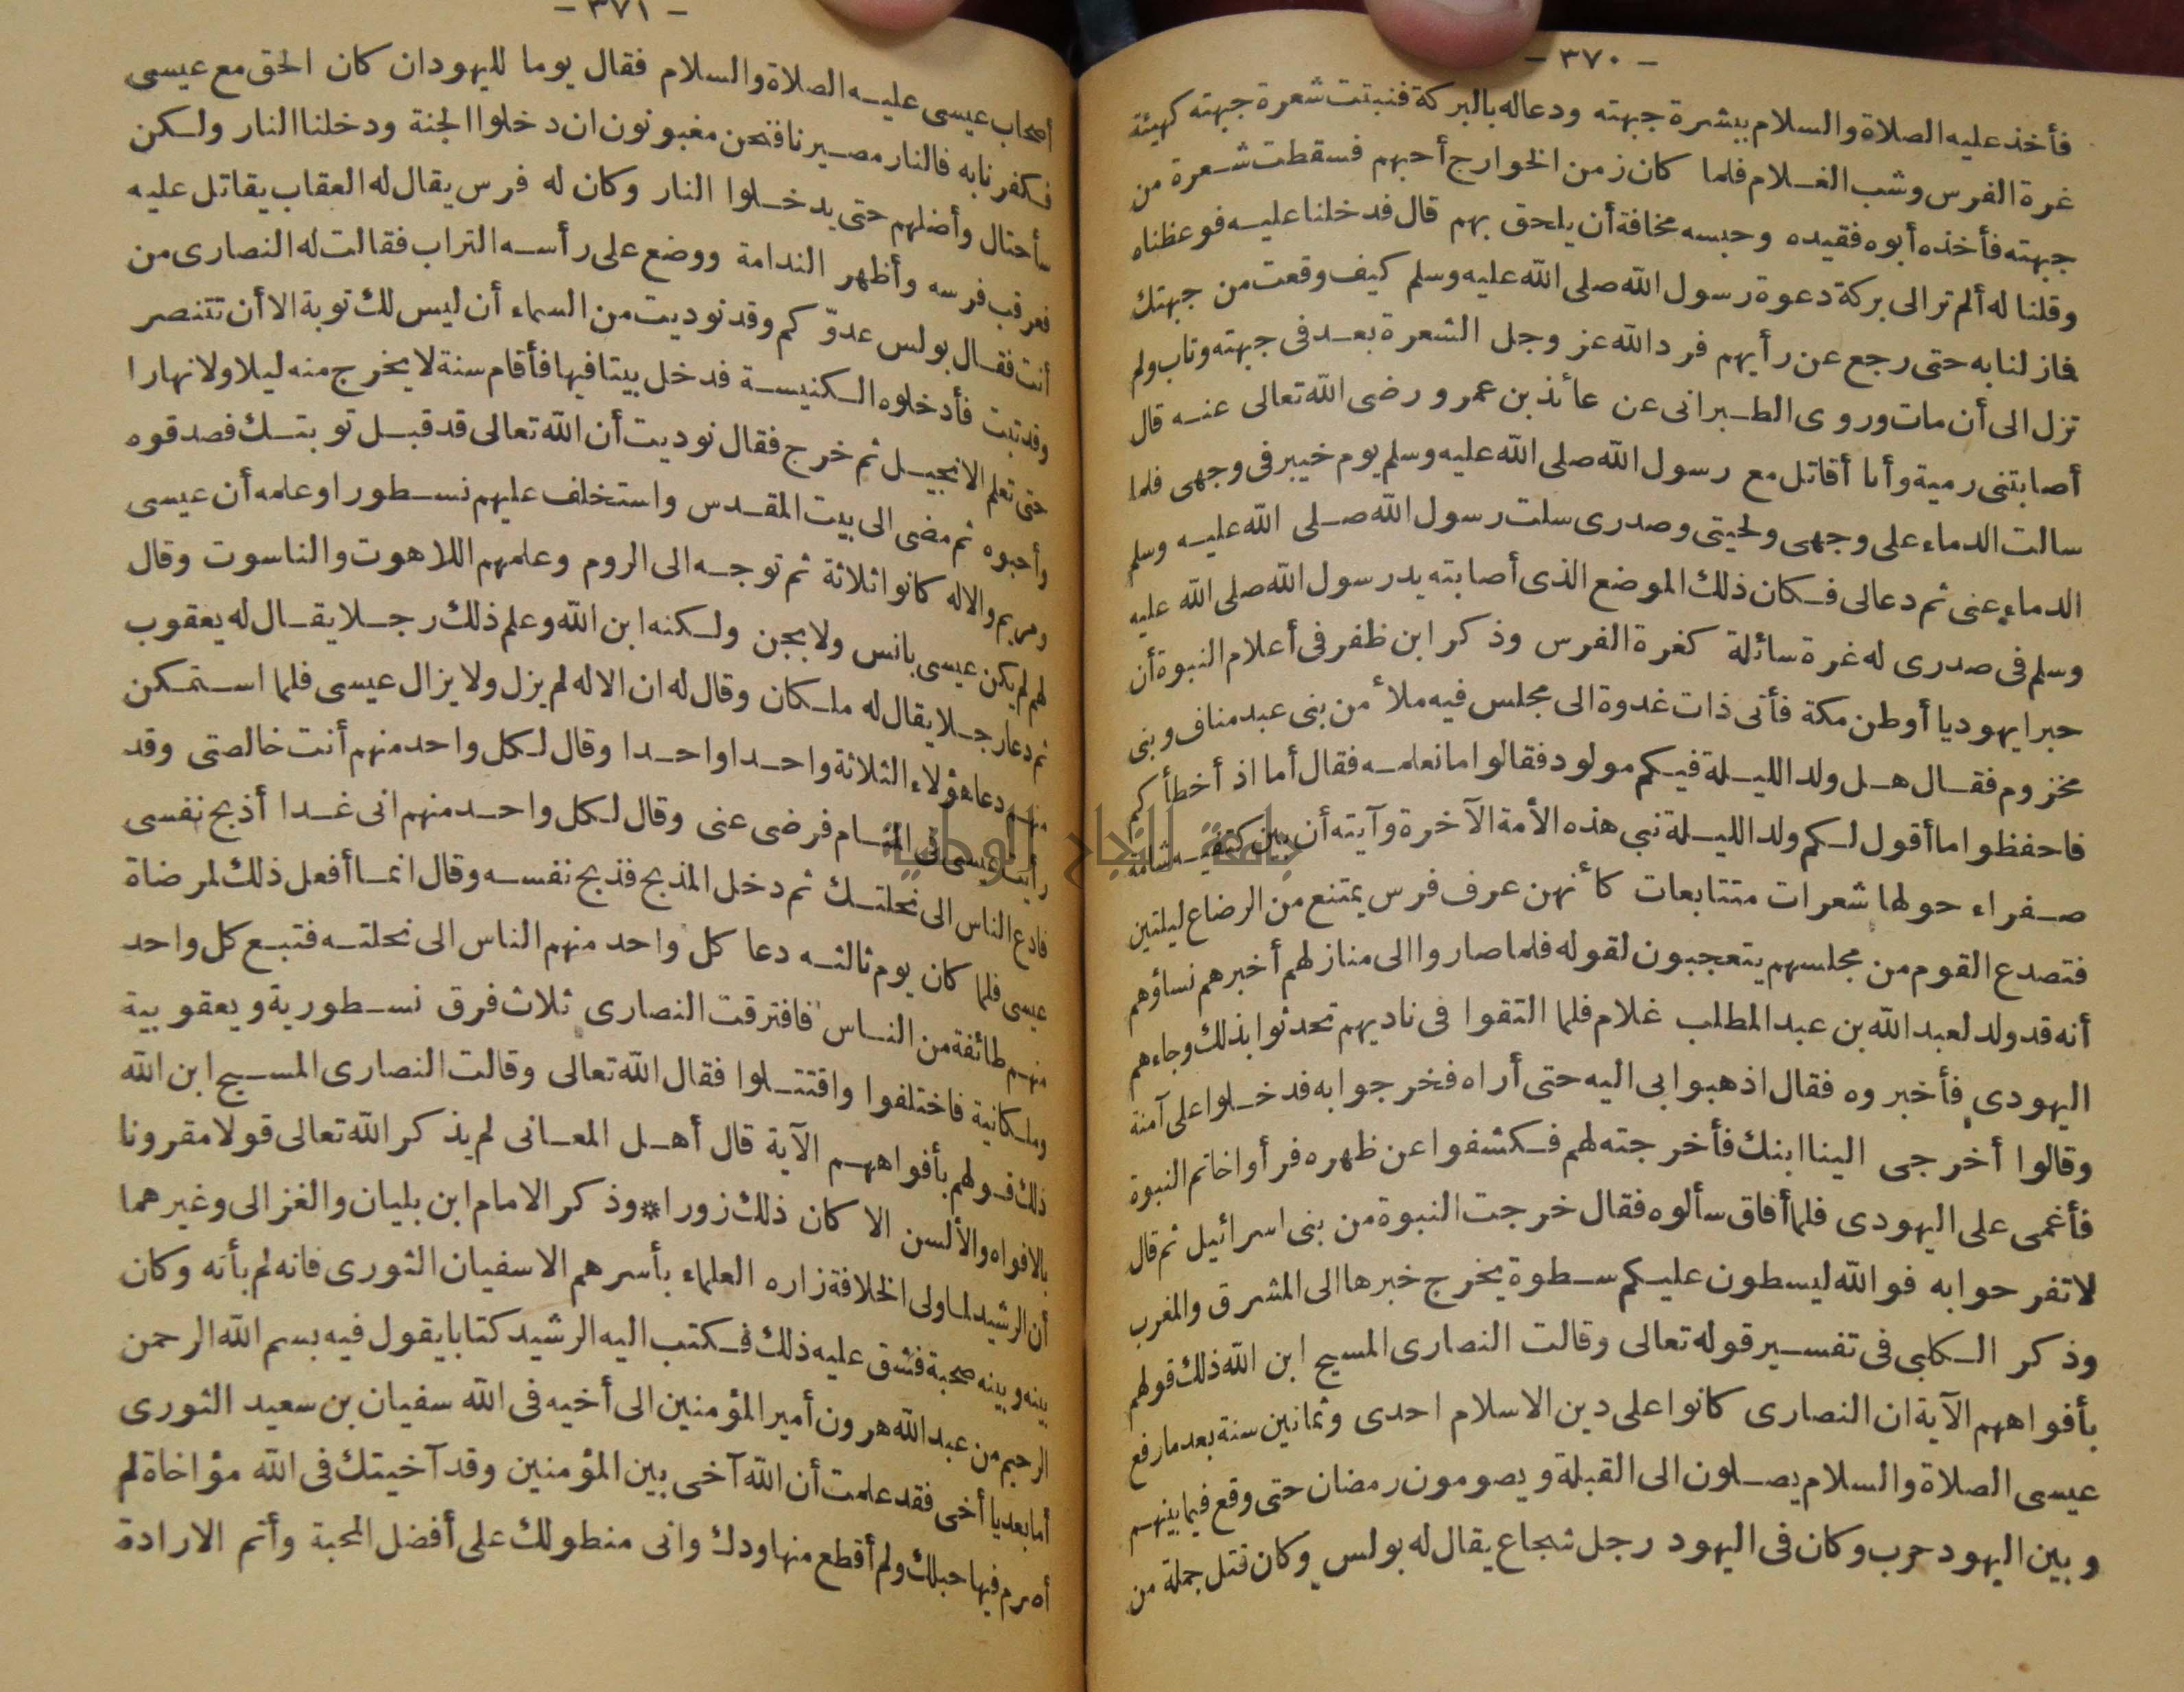 - ٣٧٠ -
فأخذ عليه الصلاة والسلام ببشرة جبهته ودعا له بالبركة فنبتت شعرة جبهته كهيئة
غرة الفرس وشب الغلام فلما كان زمن الخوارج أحبهم فسقطت شعرة من
جبهته فأخذه أبوه فقيده وحبسه مخافة أن يلحق بهم قال فدخلنا عليه فوعظناه
وقلنا له ألم تر الى بركة دعوة رسول الله صلى الله عليه وسلم كيف وقعت من جبهتك
فمازلنا به حتى رجع عن رأيهم فرد الله عز وجل الشعرة بعد فى جبهته وتاب ولم
تزل الى أن مات وروى الطبرانى عن عائذ بن عمرو رضى الله تعالى عنه قال
أصابتنى رمية وأنا أقاتل مع رسول الله صلى الله عليه وسلم يوم خيبر فى وجهى فلما
سالت الدماء على وجهى ولحيتى وصدرى سلت رسول الله صلى الله عليه وسلم
الدماء عنى ثم دعا لى فكان ذلك الموضع الذى أصابته يد رسول الله صلى الله عليه
وسلم فى صدرى له غرة سائلة كغرة الفرس وذكر ابن ظفر فى أعلام النبوة أن
حبرا يهوديا أوطن مكة فأتى ذات غدوة الى مجلس فيه ملأ من بنى عبد مناف وبنى
مخزوم فقال هل ولد الليلة فيكم مولود فقالوا ما نعلمه فقال أما اذ أخطأكم
فاحفظوا ما أقول لكم ولد الليلة نبى هذه الأمة الآخرة وآيته أن بين كتفيه شامة
صفراء حولها شعرات متتابعات كأنهن عرف فرس يمتنع من الرضاع ليلتين
فتصدع القوم من مجلسهم يتعجبون لقوله فلما صاروا الى منازلهم أخبرهم نساؤهم
أنه قد ولد لعبد الله بن عبد المطلب غلام فلما التقوا فى ناديهم تحدثوا بذلك وجاءهم
اليهودى فأخبروه فقال اذهبوا بى اليه حتى أراه فخرجوا به فدخلوا على آمنة
وقالوا أخرجى الينا ابنك فأخرجته لهم فكشفوا عن ظهره فرأوا خاتم النبوة
فأغمى على اليهودى فلما أفاق سألوه فقال خرجت النبوة من بنى اسرائيل ثم قال
لا تفرحوا به فوالله ليسطون عليكم سطوة يخرج خبرها الى المشرق والمغرب
وذكر الكلبى فى تفسير قوله تعالى وقالت النصارى المسيح ابن الله ذلك قولهم
بأفواههم الآية ان النصارى كانوا على دين الاسلام احدى وثمانين سنة بعد ما رفع
عيسى الصلاة والسلام يصلون الى القبلة ويصومون رمضان حتى وقع فيما بينهم
وبين اليهود حرب وكان فى اليهود رجل شجاع يقال له بولس وكان قتل جملة من
- ٣٧١ -
أصحاب عيسى عليه الصلاة والسلام فقال يوما لليهود ان كان الحق مع عيسى
فكفرنا به فالنار مصيرنا فنحن مغبونون ان دخلوا الجنة ودخلنا النار ولكن
سأحتال وأضلهم حتى يدخلوا النار وكان له فرس يقال له العقاب يقاتل عليه
فعرقب فرسه وأظهر الندامة ووضع على رأسه التراب فقالت له النصارى من
أنت فقال بولس عدوّكم وقد نوديت من السماء أن ليس لك توبة الا أن تتنصر
وقد تبت فأدخلوه الكنيسة فدخل بيتا فيها فأقام سنة لا يخرج منه ليلا ولا نهارا
حتى تعلم الانجيل ثم خرج فقال نوديت أن الله تعالى قد قبل توبتك فصدقوه
وأحبوه ثم مضى الى بيت المقدس واستخلف عليهم نسطورا وعلمه أن عيسى
ومريم والاله كانوا ثلاثة ثم توجه الى الروم وعلمهم اللاهوت والناسوت وقال
لهم لم يكن عيسى بانس ولا بجن ولكنه ابن الله وعلم ذلك رجلا يقال له يعقوب
ثم دعا رجلا يقال له ملكان وقال له ان الاله لم يزل ولا يزال عيسى فلما استمكن
منهم دعا هؤلاء الثلاثة واحدا واحدا وقال لكل واحد منهم أنت خالصتى وقد
رأيت عيسى فى المنام فرضى عنى وقال لكل واحد منهم انى غدا أذبح نفسى
فادع الناس الى نحلتك ثم دخل المذبح فذبح نفسه وقال انما أفعل ذلك لمرضاة
عيسى فلما كان يوم ثالثه دعا كل واحد منهم الناس الى نحلته فتبع كل واحد
منهم طائفة من الناس فافترقت النصارى ثلاث فرق نسطورية ويعقوبية
وملكانية فاختلفوا واقتتلوا فقال الله تعالى وقالت النصارى المسيح ابن الله
ذلك قولهم بأفواههم الآية قال أهل المعانى لم يذكر الله تعالى قولا مقرونا
بالافواه والألسن الا كان ذلك زورا * وذكر الامام ابن بليان والغزالى وغيرهما
أن الرشيد لما ولى الخلافة زاره العلماء بأسرهم الا سفيان الثورى فانه لم يأته وكان
بينه وبينه صحبة فشق عليه ذلك فكتب اليه الرشيد كتابا يقول فيه بسم الله الرحمن
الرحيم من عبد الله هرون أمير المؤمنين الى أخيه فى الله سفيان بن سعيد الثورى
أما بعد يا أخى فقد علمت أن الله آخى بين المؤمنين وقد آخيتك فى الله مؤاخاة لم
أصرم فيها حبلك ولم أقطع منها ودك وانى منطو لك على أفضل المحبة وأتم الارادة
جامعة النجاح الوطنية